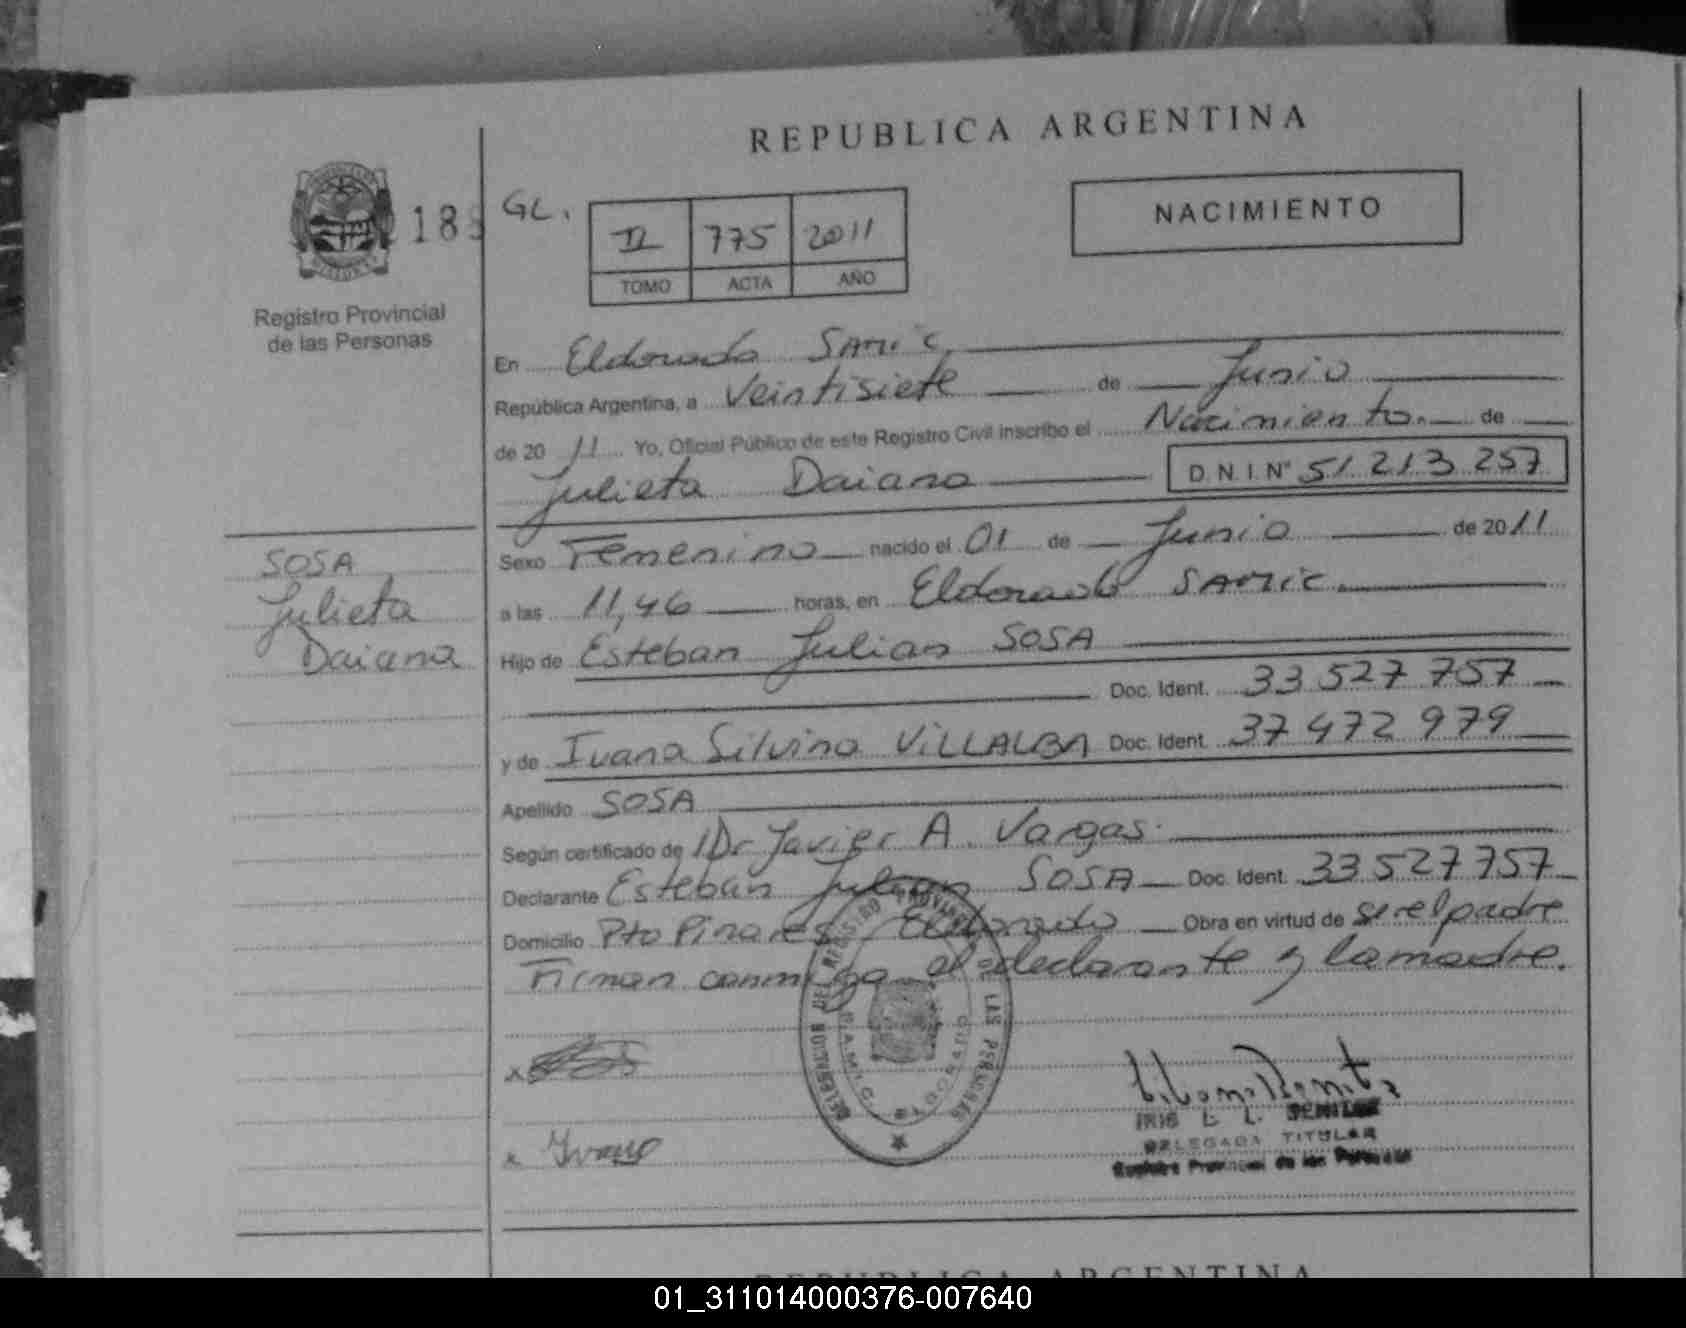 REPUBLICA ARGENTINA
NACIMIENTO
GL.
II 775 2011
TOMO ACTA AÑO
Registro Provincial
de las Personas
En Eldorado SAMIC
República Argentina, a Veintisiete de Junio
de 2011 Yo, Oficial Público de este Registro Civil inscribo el Nacimiento. de
Julieta Daiana D.N.I.Nº 51 213 257
Sexo Femenino nacido el 01 de Junio de 2011
a las 11,46 horas, en Eldorado SAMIC.
Hijo de Esteban Julian SOSA
Doc. Ident. 33 527 757
y de Ivana Silvina VILLALBA Doc. Ident. 37 472 979
Apellido SOSA
Según certificado de Dr Javier A. Vargas.
Declarante Esteban Julian SOSA Doc. Ident. 33 527 757
Domicilio Pto Pinares Eldorado Obra en virtud de ser el padre
Firman conmigo el declarante y la madre.
SOSA
Julieta
Daiana
DELEGACION DEL REGISTRO PROVINCIAL DE LAS PERSONAS
S.A.M.I.C. ELDORADO
x
x Ivana
IRIS L. L. BENITEZ
DELEGADA TITULAR
Registro Provincial de las Personas
REPUBLICA ARGENTINA
01_311014000376-007640